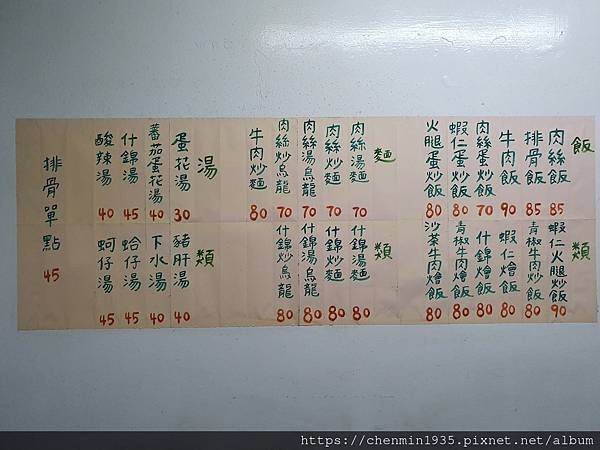 飯類
肉絲飯 85
排骨飯 85
牛肉飯 90
肉絲蛋炒飯 70
蝦仁蛋炒飯 80
火腿蛋炒飯 80
蝦仁火腿炒飯 90
青椒牛肉炒飯 85
蝦仁燴飯 80
什錦燴飯 80
青椒牛肉燴飯 80
沙茶牛肉燴飯 80
麵類
肉絲湯麵 70
肉絲炒麵 70
肉絲湯烏龍 70
肉絲炒烏龍 70
牛肉炒麵 80
什錦湯麵 80
什錦炒麵 80
什錦湯烏龍 80
什錦炒烏龍 80
湯類
蛋花湯 30
蕃茄蛋花湯 40
什錦湯 45
酸辣湯 40
豬肝湯 40
下水湯 40
蛤仔湯 45
蚵仔湯 45
排骨單點 45
https://chenmin1935.pixnet.net/album